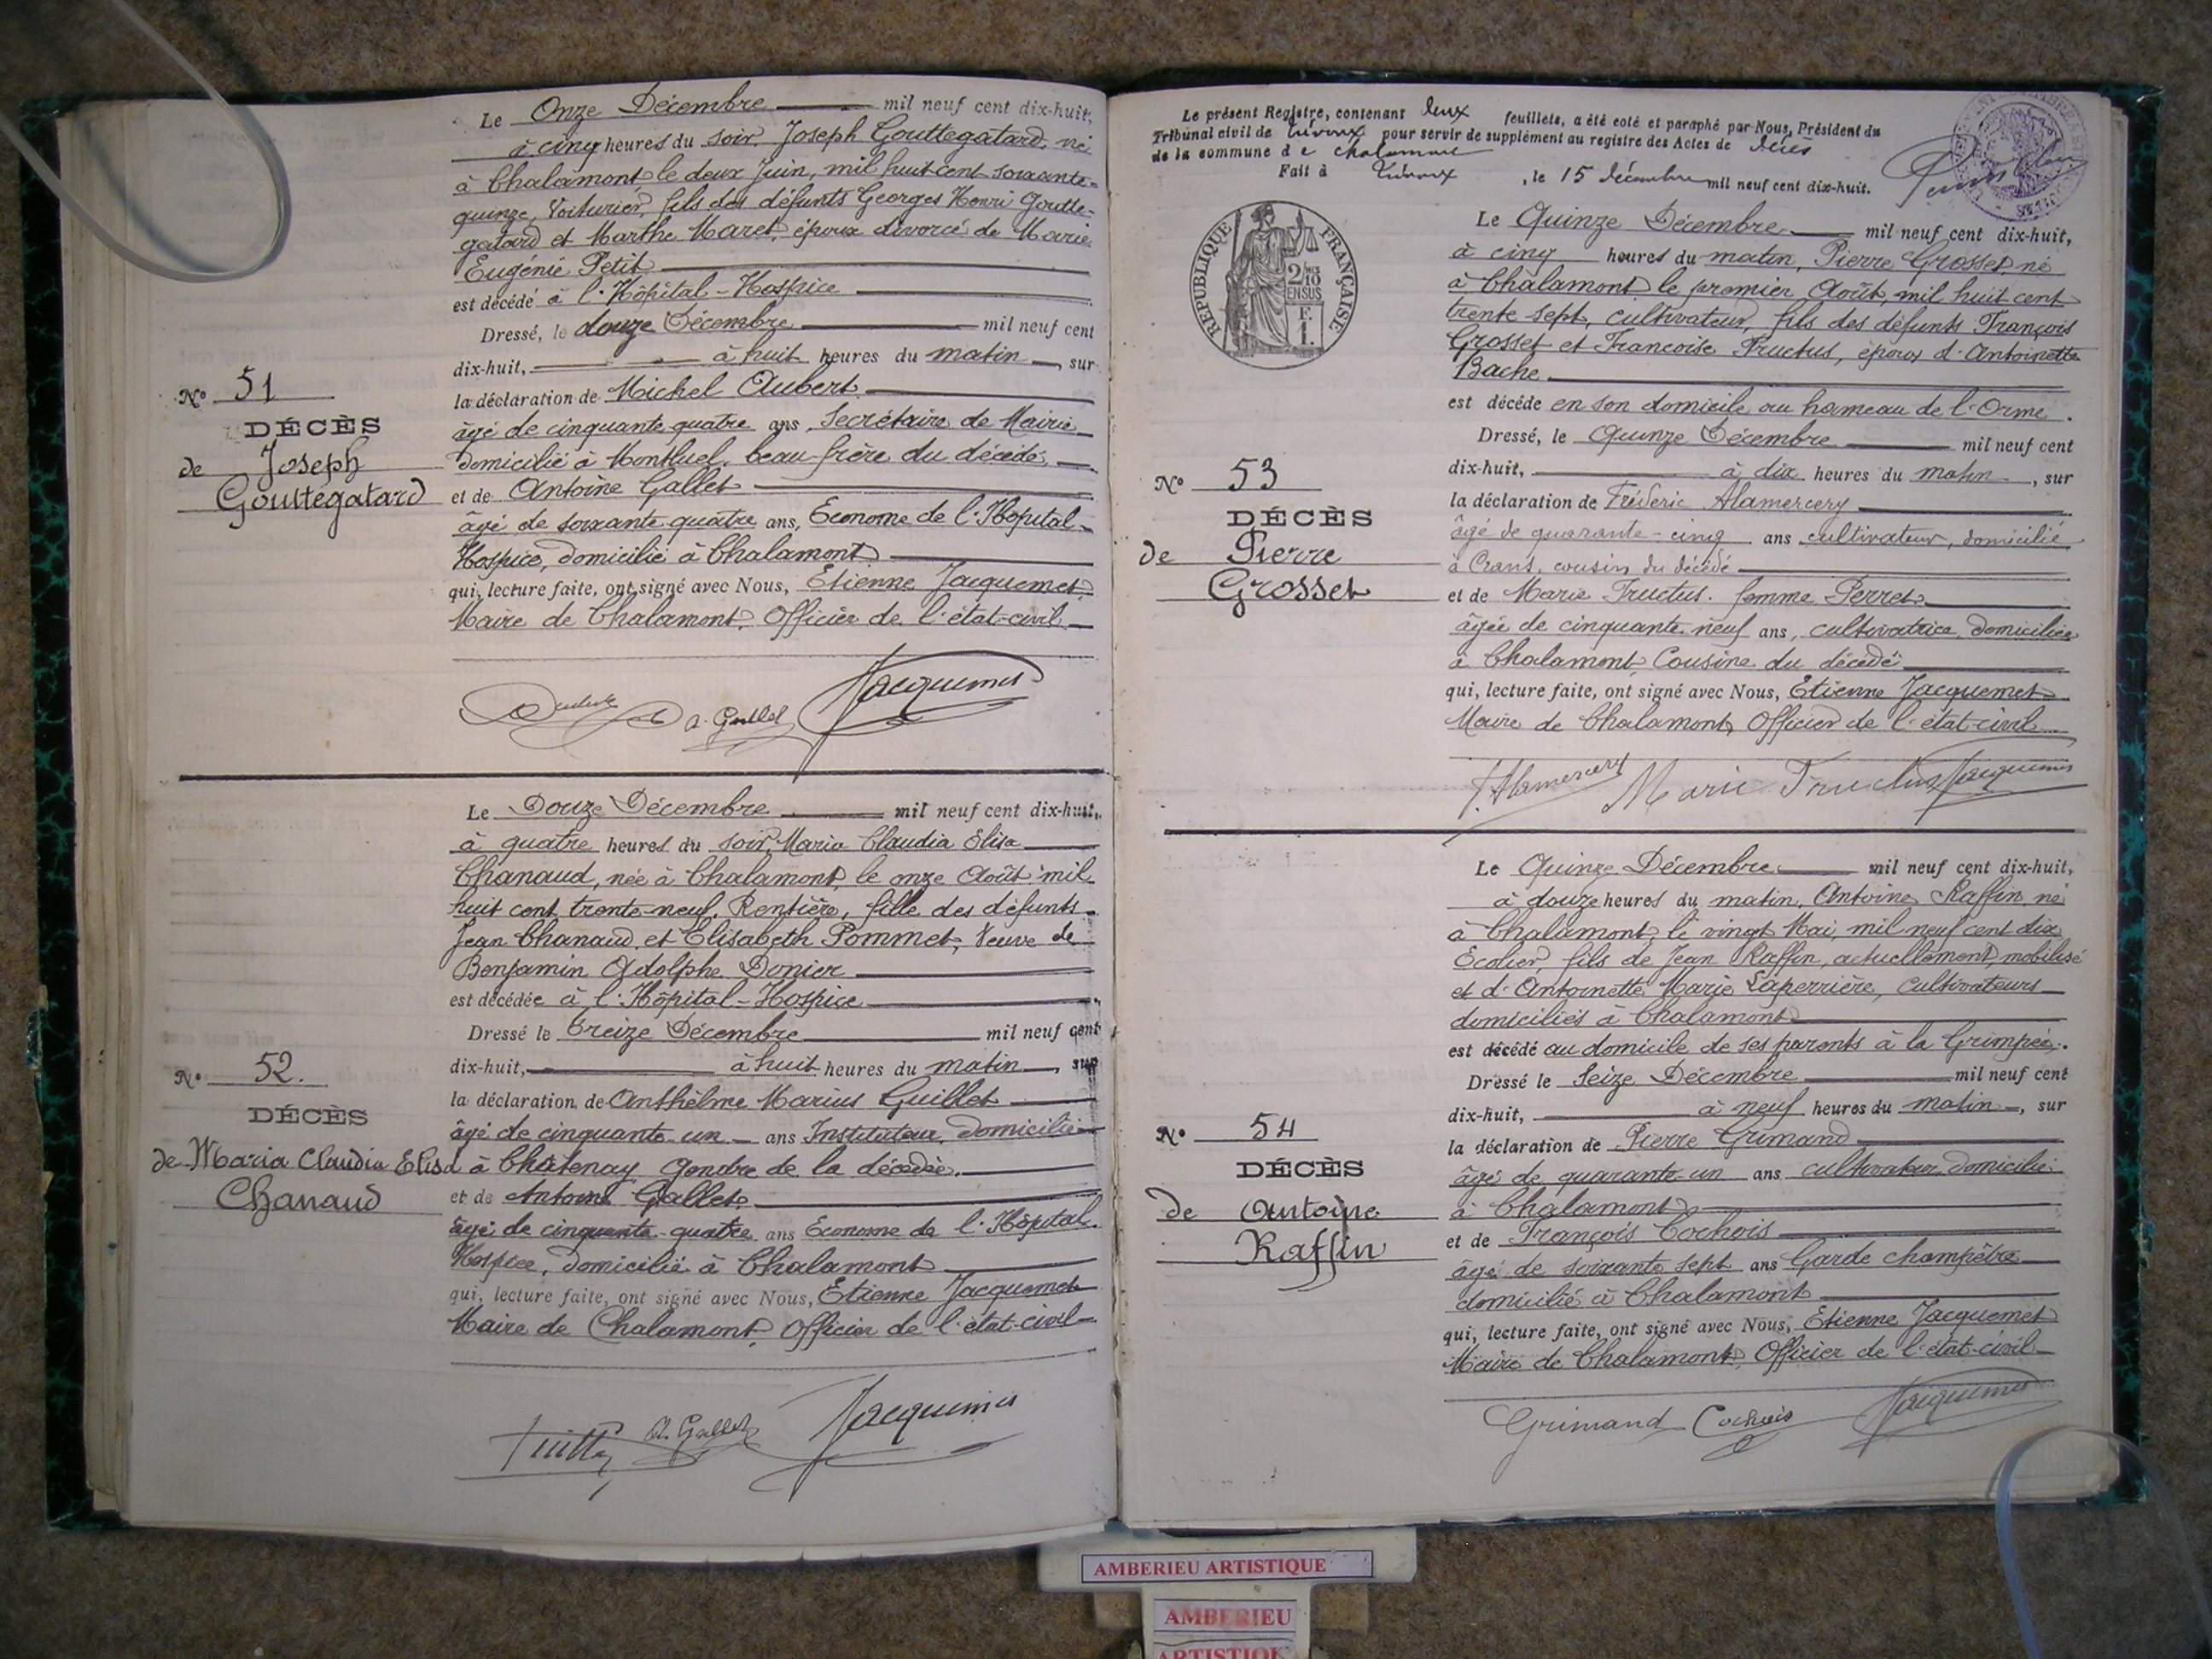 Le Onze Décembre mil neuf cent dix-huit,
à cinq heures du soir, Joseph Gouttegatard, né
à Chalamont, le deux Juin, mil huit cent soixante-
quinze, Voiturier, fils des défunts Georges Henri Goutte-
gatard et Marthe Maret, époux divorcé de Marie
Eugénie Petit
est décédé à l'Hôpital-Hospice
Dressé, le douze Décembre mil neuf cent
dix-huit, à huit heures du matin, sur
la déclaration de Michel Aubert
âgé de cinquante quatre ans, Secrétaire de Mairie
domicilié à Montluel, beau-frère du décédé,
et de Antoine Gallet
âgé de soixante quatre ans, Econome de l'Hôpital-
Hospice, domicilié à Chalamont
qui, lecture faite, ont signé avec Nous, Etienne Jacquemet
Maire de Chalamont, Officier de l'état-civil
N° 51
DÉCÈS
de Joseph
Gouttegatard
A. Gallet Jacquemet
Le Douze Décembre mil neuf cent dix-huit,
à quatre heures du soir, Maria Claudia Elisa
Chanaud, née à Chalamont, le onze Août mil
huit cent trente-neuf, Rentière, fille des défunts
Jean Chanaud et Elisabeth Pommet, Veuve de
Benjamin Adolphe Donier
est décédée à l'Hôpital-Hospice
Dressé le Treize Décembre mil neuf cent
dix-huit, à huit heures du matin, sur
la déclaration de Anthelme Marius Guillet
âgé de cinquante-un ans Instituteur, domicilié
à Châtenay Gendre de la décédée.
et de Antoine Gallet
âgé de cinquante-quatre ans Econome de l'Hôpital
Hospice, domicilié à Chalamont
qui, lecture faite, ont signé avec Nous, Etienne Jacquemet
Maire de Chalamont, Officier de l'état-civil
N° 52.
DÉCÈS
de Maria Claudia Elisa
Chanaud
A. Gallet Jacquemet
Le présent Registre, contenant deux feuillets, a été coté et paraphé par Nous, Président du
Tribunal civil de Trévoux pour servir de supplément au registre des Actes de décès
de la commune de Chalamont
Fait à Trévoux, le 15 décembre mil neuf cent dix-huit.
RÉPUBLIQUE FRANÇAISE
2/10
EN SUS
F.
1.
Le Quinze Décembre mil neuf cent dix-huit,
à cinq heures du matin, Pierre Grosset né
à Chalamont le premier Août mil huit cent
trente sept, cultivateur, fils des défunts François
Grosset et Francoise Fructus, époux d'Antoinette
Bache
est décédé en son domicile au hameau de l'Orme.
Dressé, le Quinze Décembre mil neuf cent
dix-huit, à dix heures du matin, sur
la déclaration de Fréderic Alamercery
âgé de quarante-cinq ans cultivateur, domicilié
à Crans, cousin du décédé
et de Marie Fructus. femme Perret
âgée de cinquante neuf ans, cultivatrice, domiciliée
à Chalamont Cousine du décédé
qui, lecture faite, ont signé avec Nous, Etienne Jacquemet
Maire de Chalamont, Officier de l'état-civil
N° 53
DÉCÈS
de Pierre
Grosset
F. Alamercery Marie Fructus Jacquemet
Le Quinze Décembre mil neuf cent dix-huit,
à douze heures du matin, Antoine Raffin né
à Chalamont, le vingt Mai, mil neuf cent dix
Ecolier, fils de Jean Raffin, actuellement mobilisé
et d'Antoinette Marie Laperrière, Cultivateurs
domiciliés à Chalamont
est décédé au domicile de ses parents à la Grimpée.
Dressé le Seize Décembre mil neuf cent
dix-huit, à neuf heures du matin, sur
la déclaration de Pierre Grimand
âgé de quarante-un ans cultivateur domicilié
à Chalamont
et de François Cochois
âgé de soixante sept ans Garde champêtre
domicilié à Chalamont
qui, lecture faite, ont signé avec Nous, Etienne Jacquemet
Maire de Chalamont, Officier de l'état-civil
N° 54
DÉCÈS
de Antoine
Raffin
Grimand Cochois Jacquemet
AMBERIEU ARTISTIQUE
AMBERIEU
ARTISTIQUE